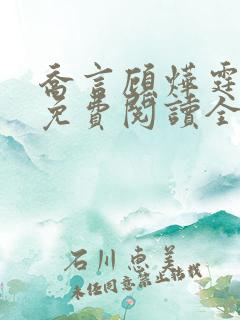 喬言顧燁霆
免費閱讀全
石川惠美
未經同意禁止轉載